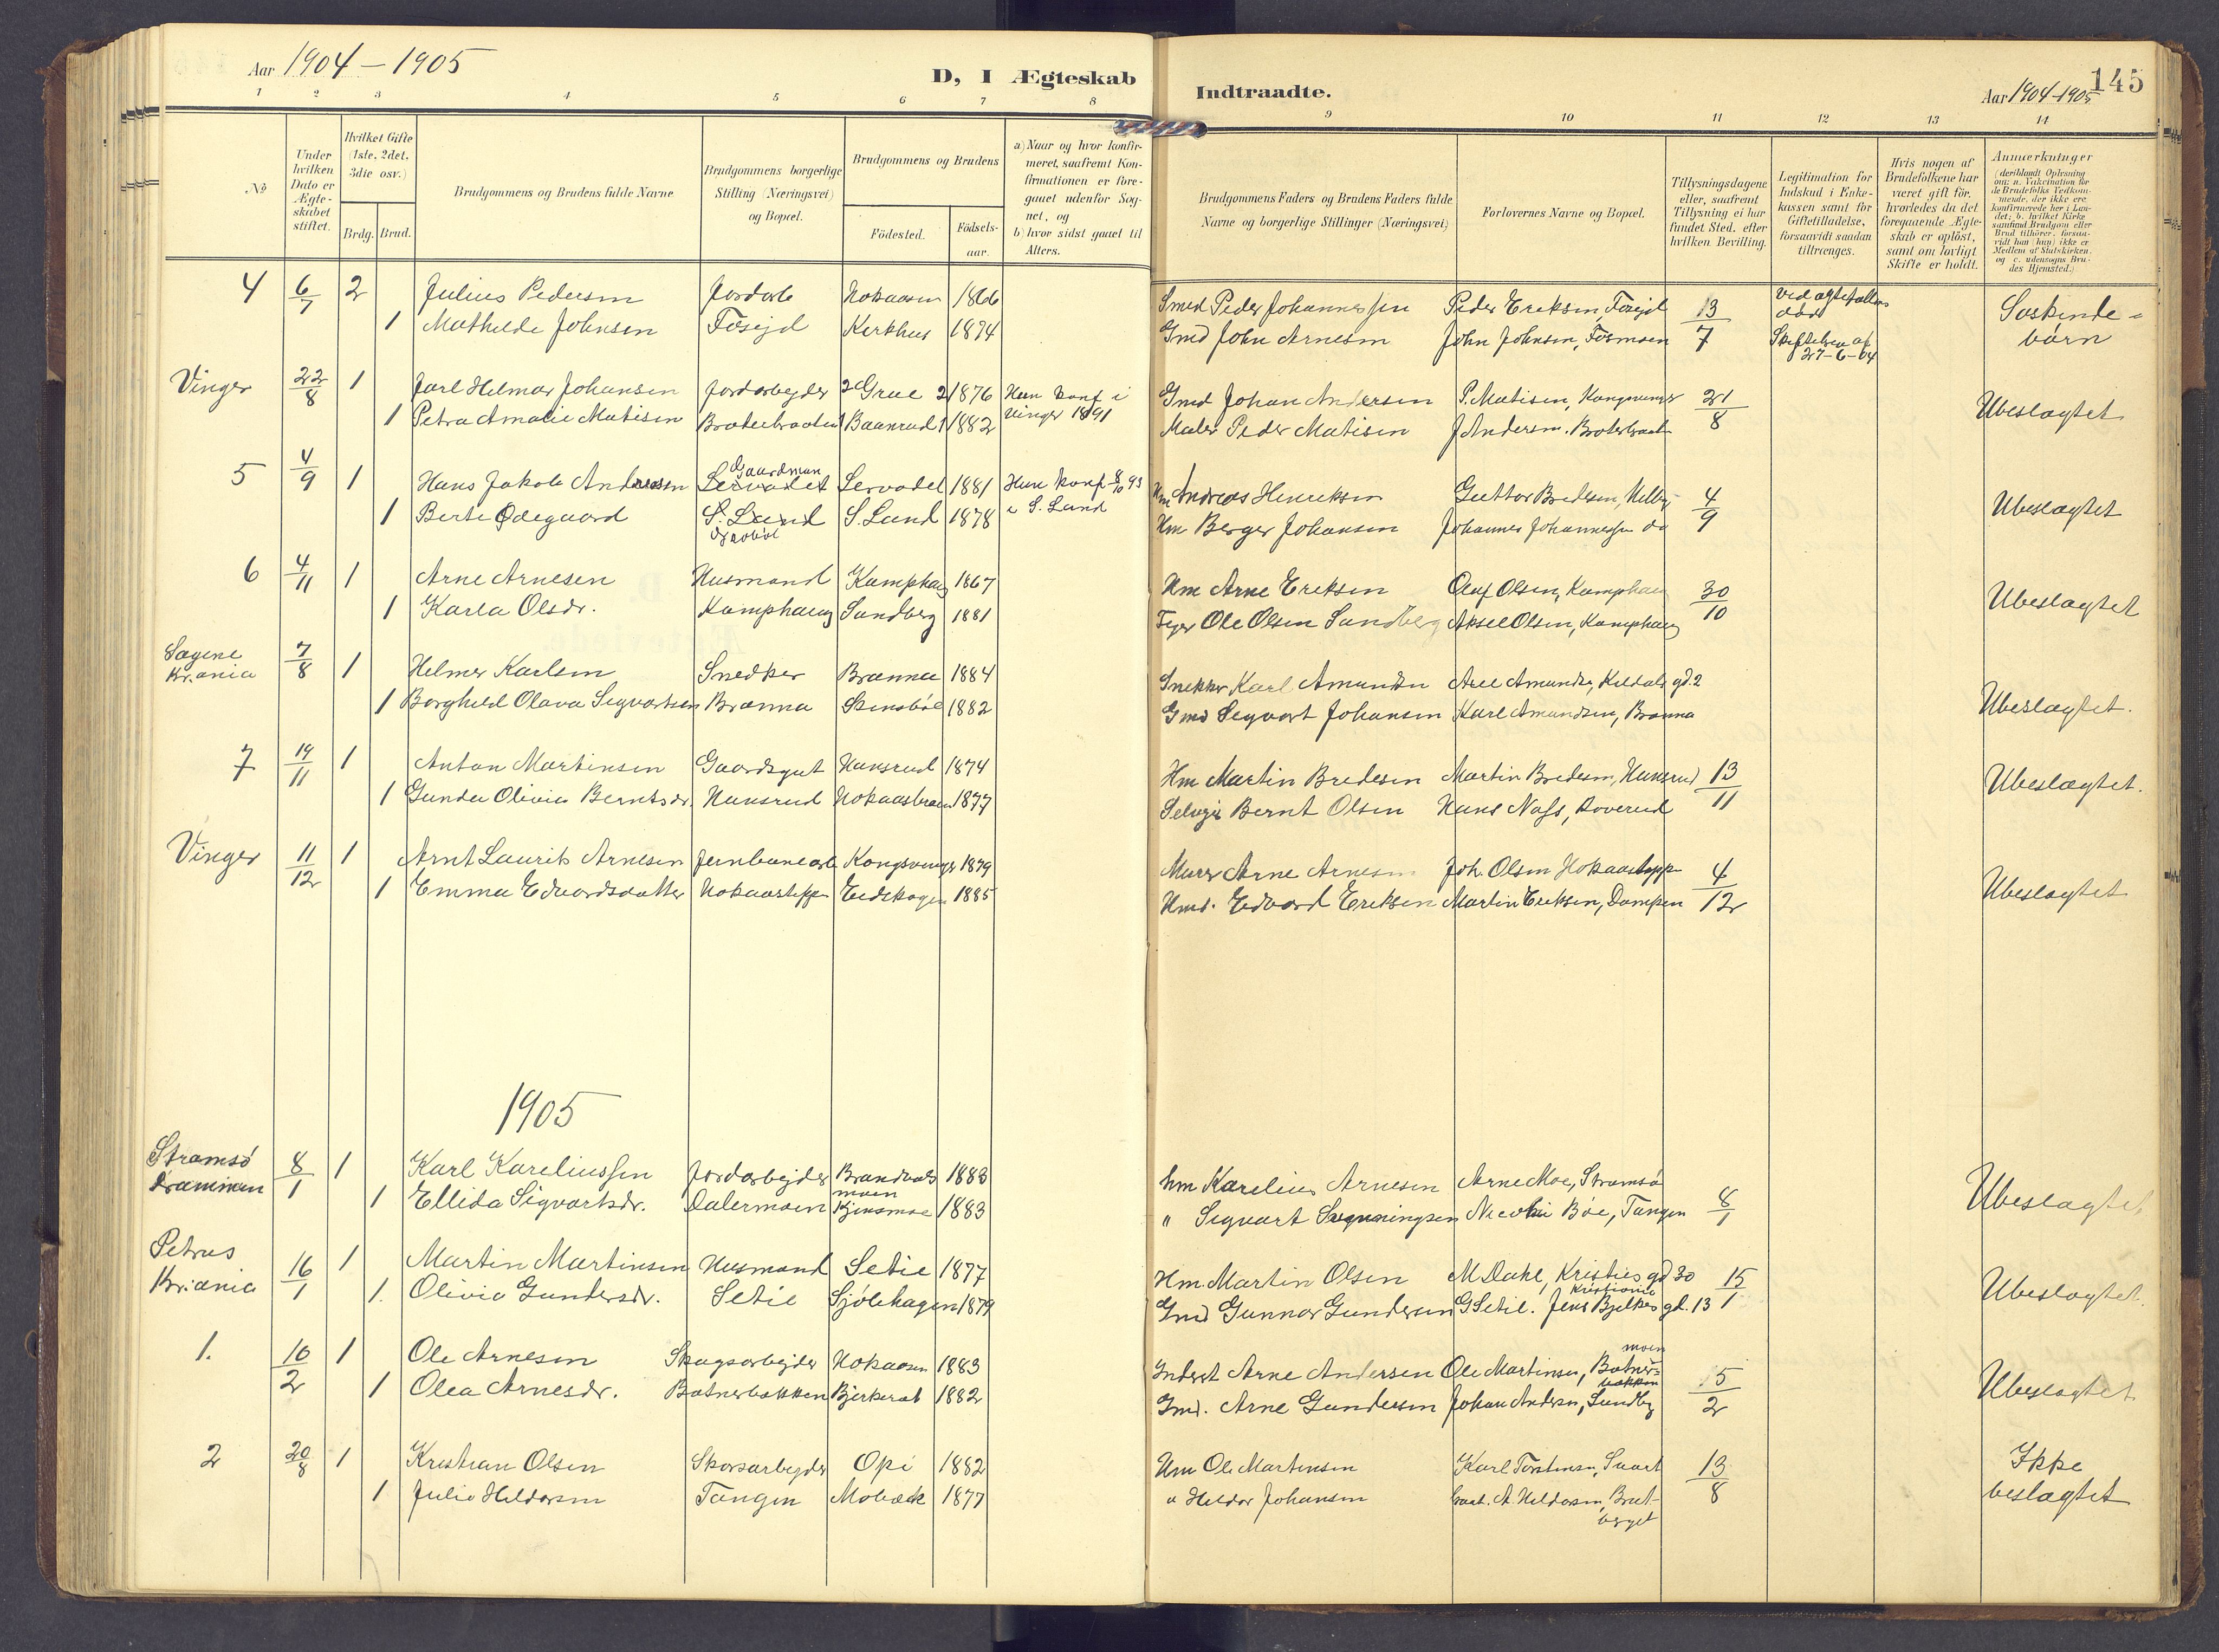 Aar 1904-1905
D, I Ægteskab
Indtraadte.
Aar 1904-1905
145
1 2 3 4 5 6 7 8 9 10 11 12 13 14
No
Under hvilken Dato er Ægteskabet stiftet.
Hvilket Gifte (1ste, 2det, 3die osv.)
Brdg. Brud.
Brudgommens og Brudens fulde Navne
Brudgommens borgerlige Stilling (Næringsvei) og Bopæl.
Brudgommens og Brudens
Födested. Födsels-aar.
a) Naar og hvor konfirmeret, saafremt Konfirmationen er foregaaet udenfor Sognet, og
b) hvor sidst gaaet til Alters.
Brudgommens Faders og Brudens Faders fulde Navne og borgerlige Stillinger (Næringsvei)
Forlovernes Navne og Bopæl.
Tillysningsdagene eller, saafremt Tillysning ei har fundet Sted, efter hvilken Bevilling.
Legitimation for Indskud i Enkekassen samt for Giftetilladelse, forsaavidt saadan tiltrænges.
Hvis nogen af Brudefolkene har været gift för, hvorledes da det foregaaende Ægteskab er oplöst, samt om lovligt Skifte er holdt.
Anmærkninger (deriblandt Oplysning om: a. Vakcination for de Brudefolks Vedkommende, der ikke ere konfirmerede her i Landet; b. hvilket Kirkesamfund Brudgom eller Brud tilhörer, forsaavidt han (hun) ikke er Medlem af Statskirken, og c. udensogns Brudes Hjemsted.)
4 6/7 2 Julius Pedersen Jordarb Hokaasen 1866 Smed Peder Johannessen Peder Eriksen, Fosejd 13/7 ved ægtefælles död Søskinde-
1 Mathilde Johnsen Fosejd Kerkhus 1874 Gmd John Arnesen John Johnsen, Fosmoen Skifteb af 27-6-04 börn
Vinger 22/8 1 Jarl Helmar Johansen Jordarbejder Grue 1876 Hun konf i Gmd Johan Andersen P. Matisen, Kongsvinger 21/8 Ubeslægtet
1 Petra Amalie Matisen Braatebraaten Baanrud 1882 Vinger 1891 Maler Peder Matisen J Andersen. Braatebraat
5 4/9 1 Hans Jakob Andreasen Gaardman Servadet Servadet 1881 Hun konf 8/10 93 Hm Andreas Henriksen Guttor Bredesen, 4/9 Ubeslægtet
1 Berte Ødegaard S. Land S. Land 1878 i S. Land Hm Berger Johansen Johannes Johannessen do
6 4/11 1 Arne Arnesen Husmand Kamphaug 1867 Hm Arne Eriksen Oluf Olsen, Kamphaug 30/10 Ubeslægtet
1 Karla Olsdr. Kamphaug Sandberg 1881 Ole Olsen Sandberg Aksel Olsen, Kamphaug
Sagene Kr.ania 7/8 1 Helmer Karlsen Snedker Branna 1884 Snekker Karl Amundsen Axel Amundsn, gd. 2 Ubeslægtet.
1 Borghild Olava Segvartsen Branna Stensböl 1882 Gmd Segvart Johansen Karl Amundsen, Branna
7 19/11 1 Anton Martinsen Gaardsgut Hansrud 1874 Hm Martin Bredesen Martin Bredesen, Hansrud 13/11 Ubeslægtet.
1 Gunda Olivia Berntsdr. Hansrud Hokaasbraaten 1877 Selvejer Bernt Olsen Hans Næss, Roverud
Vinger 11/12 1 Arnt Laurits Arnesen Jernbanearb Kongsvinger 1879 Murer Arne Arnesen Joh. Olsen Hokaastopp 4/12 Ubeslægtet
1 Emma Edvardsdatter Hokaastoppe Eidskogen 1885 Hmd. Edvard Eriksen Martin Eriksen, Dampen
1905
Strømsö Drammen 8/1 1 Karl Kareliussen Jordarbejder Brandvalsmoen 1883 hm Karelius Arnesen Arne Moe, Strømsø 8/1 Ubeslægtet
1 Ellida Sigvartsdr. Dalermoen Kjensmoe 1883 " Segvart Nicolai Böe, Tangen
Petrus Kr.ania 16/1 1 Martin Martinsen Husmand Setie 1877 Hm. Martin Olsen M Dahl, Kristies gd 30 Kristiania 15/1 Ubeslægtet.
1. Olivia Gundersdr. Setie Sjölihagen 1879 Gmd Gunnar Gundersen G Setil. Jens Bjelkes gd. 13
1. 16/2 1 Ole Arnesen Skogsarbejder Hokaasen 1883 Inderst Arne Andersen Ole Martinsen, Botnermoen 15/2 Ubeslægtet
1 Olea Arnesdr. Botnerbakken Bjerkerat 1882 Gmd. Arne Gundersen Johan Andersen, Sundby
2 20/8 1 Kristian Olsen Skovsarbejder Opi 1882 Hm Ole Martinsen Karl Torstensen, 13/8 Ikke
1 Julie Heldorsen Tangen Mobæk 1877 " Heldor Johansen A. Heldorsen, Bratberget beslægtet